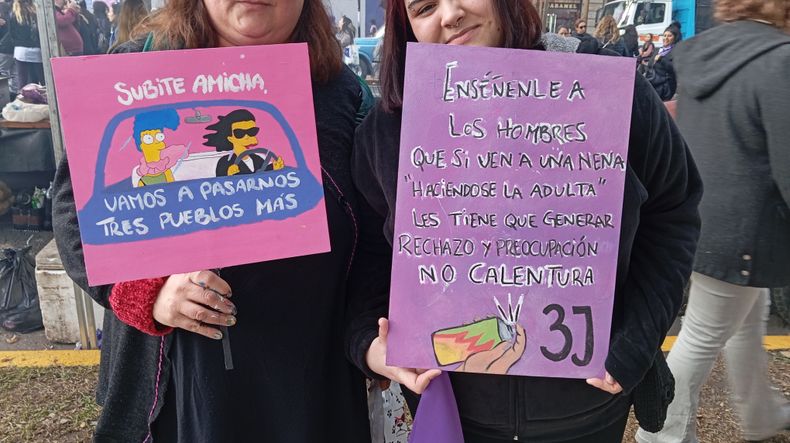 SUBITE AMICHA,
VAMOS A PASARNOS
TRES PUEBLOS MÁS
ENSÉÑENLE A
LOS HOMBRES
QUE SI VEN A UNA NENA
"HACIÉNDOSE LA ADULTA"
LES TIENE QUE GENERAR
RECHAZO Y PREOCUPACIÓN
NO CALENTURA
3J